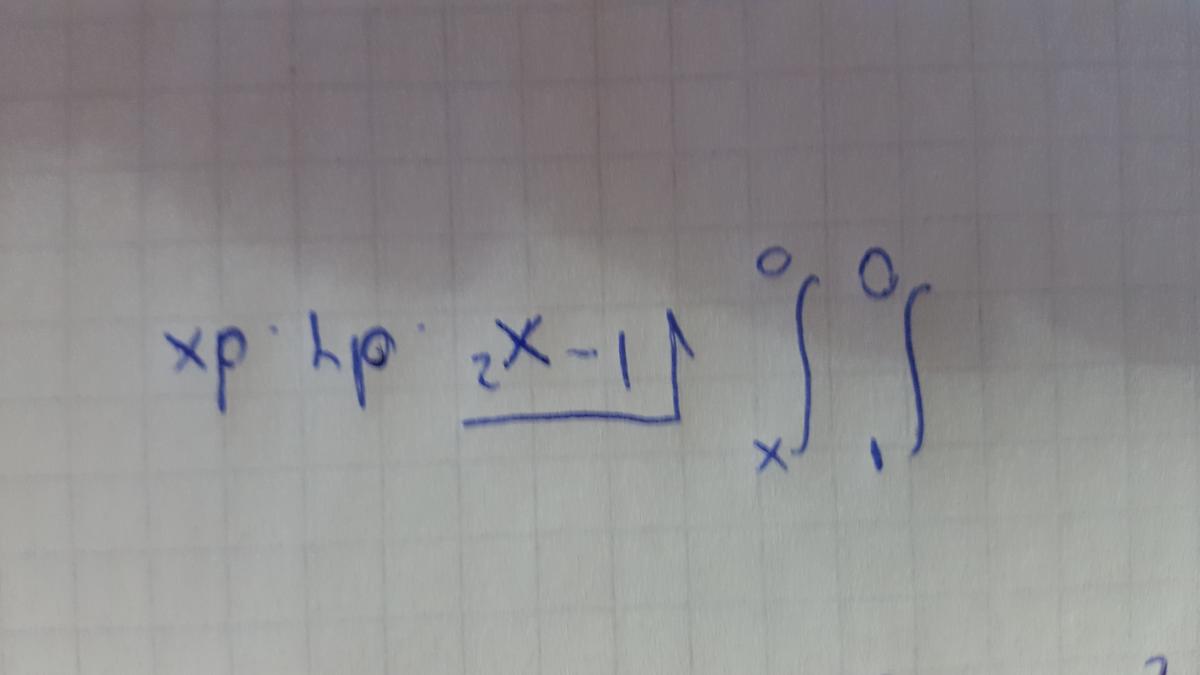 ∫₀¹ ∫₀ˣ √(1-x²) · dy · dx